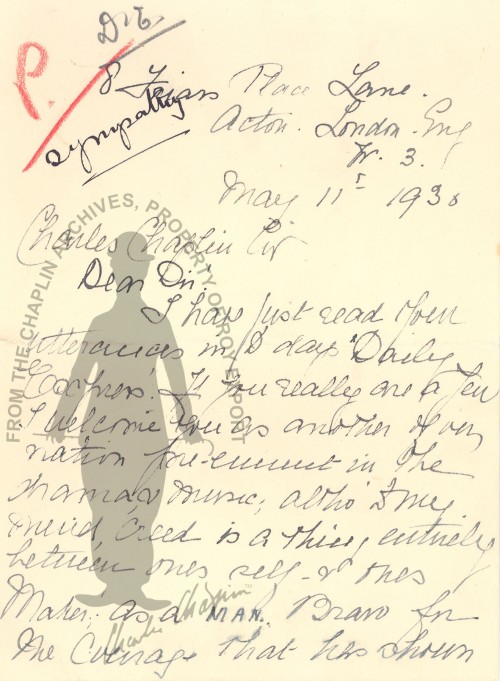 P.
Dic
sympathy
8 Friars Place Lane.
Acton. London. Eng
W. 3.
May 11 1930
Charles Chaplin
Dear Sir.
I have just read your
utterances in "D days "Daily
Express'. If you really are a Jew
I welcome you as another of our
nation pre-eminent in the
drama & music; altho' to my
mind, 'creed is a thing entirely
between ones self & ones
Maker; as a MAN. Bravo for
the courage that has shown
FROM THE CHAPLIN ARCHIVES, PROPERTY OF ROY EXPORT
Charlie Chaplin